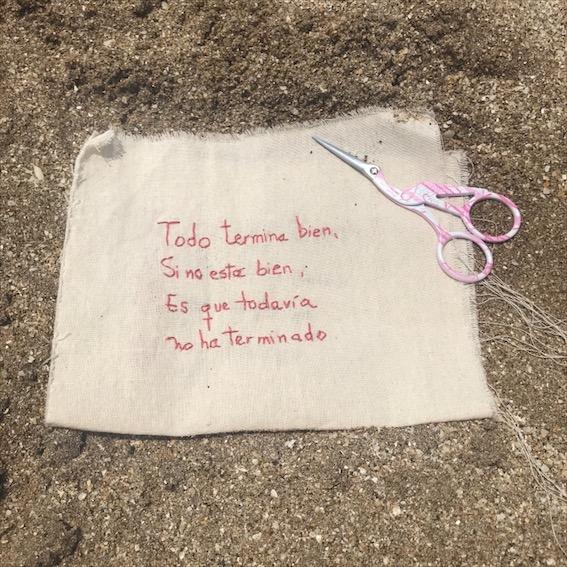 Todo termina bien.
Si no esta bien,
Es que todavía
no ha terminado